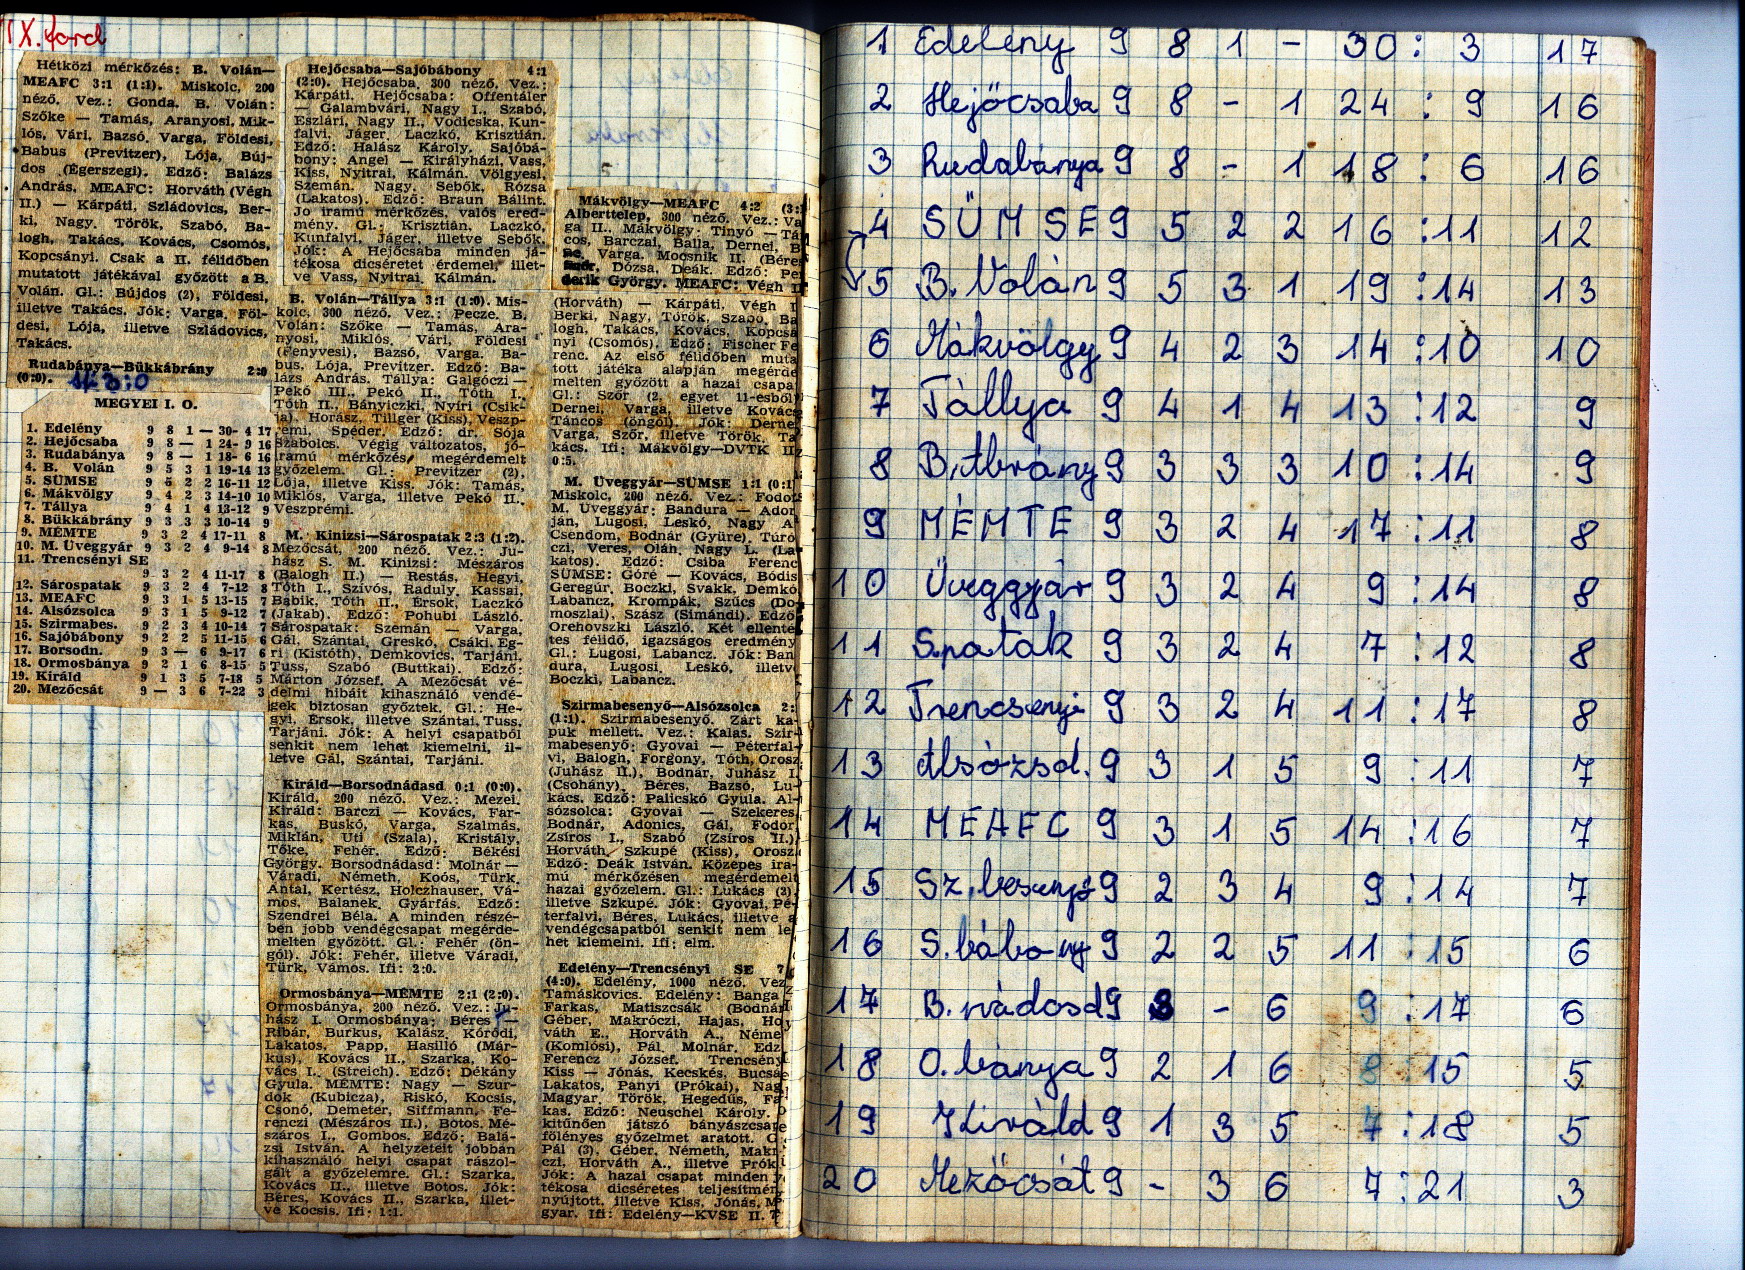 IX. ford
Hétközi mérkőzés: B. Volán—
MEAFC 3:1 (1:1). Miskolc, 200
néző. Vez.: Gonda. B. Volán:
Szőke — Tamás, Aranyosi, Mik-
lós, Vári, Bazsó, Varga, Földesi,
Babus (Previtzer), Lója, Búj-
dos (Egerszegi). Edző: Balázs
András. MEAFC: Horváth (Végh
II.) — Kárpáti, Szládovics, Ber-
ki, Nagy, Török, Szabó, Ba-
logh, Takács, Kovács, Csomós,
Kopcsányi. Csak a II. félidőben
mutatott játékával győzött a B.
Volán. Gl.: Bújdos (2), Földesi,
illetve Takács. Jók: Varga, Föl-
desi, Lója, illetve Szládovics,
Takács.
Rudabánya—Bükkábrány 2:0
(0:0). 3:0
MEGYEI I. O.
1. Edelény 9 8 1 — 30- 4 17
2. Hejőcsaba 9 8 — 1 24- 9 16
3. Rudabánya 9 8 — 1 18- 6 16
4. B. Volán 9 5 3 1 19-14 13
5. SÜMSE 9 5 2 2 16-11 12
6. Mákvölgy 9 4 2 3 14-10 10
7. Tállya 9 4 1 4 13-12 9
8. Bükkábrány 9 3 3 3 10-14 9
9. MÉMTE 9 3 2 4 17-11 8
10. M. Üveggyár 9 3 2 4 9-14 8
11. Trencsényi SE
9 3 2 4 11-17 8
12. Sárospatak 9 3 2 4 7-12 8
13. MEAFC 9 3 1 5 13-15 7
14. Alsózsolca 9 3 1 5 9-12 7
15. Szirmabes. 9 2 3 4 10-14 7
16. Sajóbábony 9 2 2 5 11-15 6
17. Borsodn. 9 3 — 6 9-17 6
18. Ormosbánya 9 2 1 6 8-15 5
19. Királd 9 1 3 5 7-18 5
20. Mezőcsát 9 — 3 6 7-22 3
Hejőcsaba—Sajóbábony 4:1
(2:0). Hejőcsaba, 300 néző. Vez.:
Kárpáti. Hejőcsaba: Offentáler
— Galambvári, Nagy I., Szabó,
Eszlári, Nagy II., Vodicska, Kun-
falvi, Jáger, Laczkó, Krisztián.
Edző: Halász Károly. Sajóbá-
bony: Angel — Királyházi, Vass,
Kiss, Nyitrai, Kálmán, Völgyesi,
Szemán, Nagy, Sebők, Rózsa
(Lakatos). Edző: Braun Bálint.
Jó iramú mérkőzés, valós ered-
mény. Gl.: Krisztián, Laczkó,
Kunfalvi, Jáger, illetve Sebők.
Jók: A Hejőcsaba minden já-
tékosa dicséretet érdemel, illet-
ve Vass, Nyitrai, Kálmán.
B. Volán—Tállya 3:1 (1:0). Mis-
kolc, 300 néző. Vez.: Pecze. B.
Volán: Szőke — Tamás, Ara-
nyosi, Miklós, Vári, Földesi
(Fenyvesi), Bazsó, Varga, Ba-
bus, Lója, Previtzer. Edző: Ba-
lázs András. Tállya: Galgóczi —
Pekó III., Pekó II., Tóth I.,
Tóth II., Bányiczki, Nyíri (Csik-
la), Horász, Tillger (Kiss), Veszp-
rémi, Spéder. Edző: dr. Sója
Szabolcs. Végig változatos, jó-
iramú mérkőzés, megérdemelt
győzelem. Gl.: Previtzer (2),
Lója, illetve Kiss. Jók: Tamás,
Miklós, Varga, illetve Pekó II.,
Veszprémi.
M. Kinizsi—Sárospatak 2:3 (1:2).
Mezőcsát, 200 néző. Vez.: Ju-
hász S. M. Kinizsi: Mészáros
(Balogh II.) — Restás, Hegyi,
Tóth I., Szívós, Raduly, Kassai,
Babik, Tóth II., Érsok, Laczkó
(Jakab). Edző: Pohubi László.
Sárospatak: Szemán — Varga,
Gál, Szántai, Greskó, Csáki, Eg-
ri (Kistóth), Demkovics, Tarjáni,
Tuss, Szabó (Buttkai). Edző:
Márton József. A Mezőcsát vé-
delmi hibáit kihasználó vendé-
gek biztosan győztek. Gl.: He-
gyi, Érsok, illetve Szántai, Tuss,
Tarjáni. Jók: A helyi csapatból
senkit nem lehet kiemelni, il-
letve Gál, Szántai, Tarjáni.
Királd—Borsodnádasd 0:1 (0:0).
Királd, 200 néző. Vez.: Mezei.
Királd: Barczi — Kovács, Far-
kas, Buskó, Varga, Szalmás,
Miklán, Uti (Szala), Kristály,
Tőke, Fehér. Edző: Békési
György. Borsodnádasd: Molnár —
Váradi, Németh, Koós, Türk,
Antal, Kertész, Holczhauser, Vá-
mos, Balanek, Gyárfás. Edző:
Szendrei Béla. A minden részé-
ben jobb vendégcsapat megérde-
melten győzött. Gl.: Fehér (ön-
gól). Jók: Fehér, illetve Váradi,
Türk, Vámos. Ifi: 2:0.
Ormosbánya—MÉMTE 2:1 (2:0).
Ormosbánya, 200 néző. Vez.: Ju-
hász I. Ormosbánya: Béres —
Ribár, Burkus, Kalász, Kóródi,
Lakatos, Papp, Hasilló (Már-
kus), Kovács II., Szarka, Ko-
vács I. (Streich). Edző: Dékány
Gyula. MÉMTE: Nagy — Szur-
dok (Kubicza), Riskó, Kocsis,
Csonó, Demeter, Siffmann, Fe-
renczi (Mészáros II.), Botos, Mé-
száros I., Gombos. Edző: Balá-
zsi István. A helyzeteit jobban
kihasználó helyi csapat rászol-
gált a győzelemre. Gl.: Szarka,
Kovács II., illetve Botos. Jók:
Béres, Kovács II., Szarka, illet-
ve Kocsis. Ifi: 1:1.
Mákvölgy—MEAFC 4:2 (3:
Alberttelep, 300 néző. Vez.: Va
ga II.. Mákvölgy: Tinyó — Tá
cos, Barczai, Balla, Dernei, B
Varga, Mocsnik II. (Bére
Dózsa, Deák. Edző: Pe
derik György. MEAFC: Végh
(Horváth) — Kárpáti, Végh I
Berki, Nagy, Török, Szabó, Ba
logh, Takács, Kovács, Kopcsá
nyi (Csomós). Edző: Fischer Fe
renc. Az első félidőben muta
tott játéka alapján megérde
melten győzött a hazai csapa
Gl.: Szőr (2, egyet 11-esből)
Dernei, Varga, illetve Kovács
Táncos (öngól). Jók: Derne
Varga, Szőr, illetve Török, Ta
kács. Ifi: Mákvölgy—DVTK II.
0:5.
M. Üveggyár—SÜMSE 1:1 (0:1)
Miskolc, 200 néző. Vez.: Fodor
M. Üveggyár: Bandura — Ador
ján, Lugosi, Leskó, Nagy A
Csendom, Bodnár (Gyüre), Turó
czi, Veres, Oláh, Nagy L. (La
katos). Edző: Csiba Ferenc
SÜMSE: Góré — Kovács, Bódis
Geregúr, Boczki, Svakk, Demkó
Labancz, Krompák, Szűcs (Do-
moszlai), Szász (Simándi). Edző
Orehovszki László. Két ellenté
tes félidő, igazságos eredmény
Gl.: Lugosi, Labancz. Jók: Ban
dura, Lugosi, Leskó, illetve
Boczki, Labancz.
Szirmabesenyő—Alsózsolca 2:
(1:1). Szirmabesenyő. Zárt ka-
puk mellett. Vez.: Kalas. Szir-
mabesenyő: Gyovai — Péterfal-
vi, Balogh, Forgony, Tóth, Orosz
(Juhász II.), Bodnár, Juhász I.
(Csohány), Béres, Bazsó, Lu-
kács. Edző: Palicskó Gyula. Al-
sózsolca: Gyovai — Szekeres,
Bodnár, Adonics, Gál, Fodor,
Zsíros I., Szabó (Zsíros II.),
Horváth, Szkupé (Kiss), Orosz.
Edző: Deák István. Közepes ira-
mú mérkőzésen megérdemelt
hazai győzelem. Gl.: Lukács (2),
illetve Szkupé. Jók: Gyovai, Pé-
terfalvi, Béres, Lukács, illetve a
vendégcsapatból senkit nem le
het kiemelni. Ifi: elm.
Edelény—Trencsényi SE 7
(4:0). Edelény, 1000 néző. Vez
Tamáskovics. Edelény: Banga
Farkas, Matiszcsák (Bodnár
Géber, Makróczi, Hajas, Ho
váth E., Horváth A., Néme
(Komlósi), Pál, Molnár. Edz
Ferencz József. Trencsény
Kiss — Jónás, Kecskés, Bucsá
Lakatos, Panyi (Prókai), Nag
Magyar, Török, Hegedűs, Fa
kas. Edző: Neuschel Károly.
kitűnően játszó bányászcsapa
fölényes győzelmet aratott. G
Pál (3), Géber, Németh, Mak
czi, Horváth A., illetve Prók
Jók: A hazai csapat minden j
tékosa dicséretes teljesítmén
nyújtott, illetve Kiss, Jónás, M
gyar. Ifi: Edelény—KVSE II. 7
1 Edelény 9 8 1 - 30 : 3 17
2 Hejőcsaba 9 8 - 1 24 : 9 16
3 Rudabánya 9 8 - 1 18 : 6 16
4 SÜMSE 9 5 2 2 16 : 11 12
5 B. Volán 9 5 3 1 19 : 14 13
6 Mákvölgy 9 4 2 3 14 : 10 10
7 Tállya 9 4 1 4 13 : 12 9
8 B. Ábrány 9 3 3 3 10 : 14 9
9 MÉMTE 9 3 2 4 17 : 11 8
10 Üveggyár 9 3 2 4 9 : 14 8
11 S.patak 9 3 2 4 7 : 12 8
12 Trencsényi 9 3 2 4 11 : 17 8
13 Alsózsol. 9 3 1 5 9 : 11 7
14 MEAFC 9 3 1 5 14 : 16 7
15 Sz.besenyő 9 2 3 4 9 : 14 7
16 S.bábony 9 2 2 5 11 : 15 6
17 B.nádasd 9 3 - 6 9 : 17 6
18 O.bánya 9 2 1 6 8 : 15 5
19 Királd 9 1 3 5 7 : 18 5
20 Mezőcsát 9 - 3 6 7 : 21 3